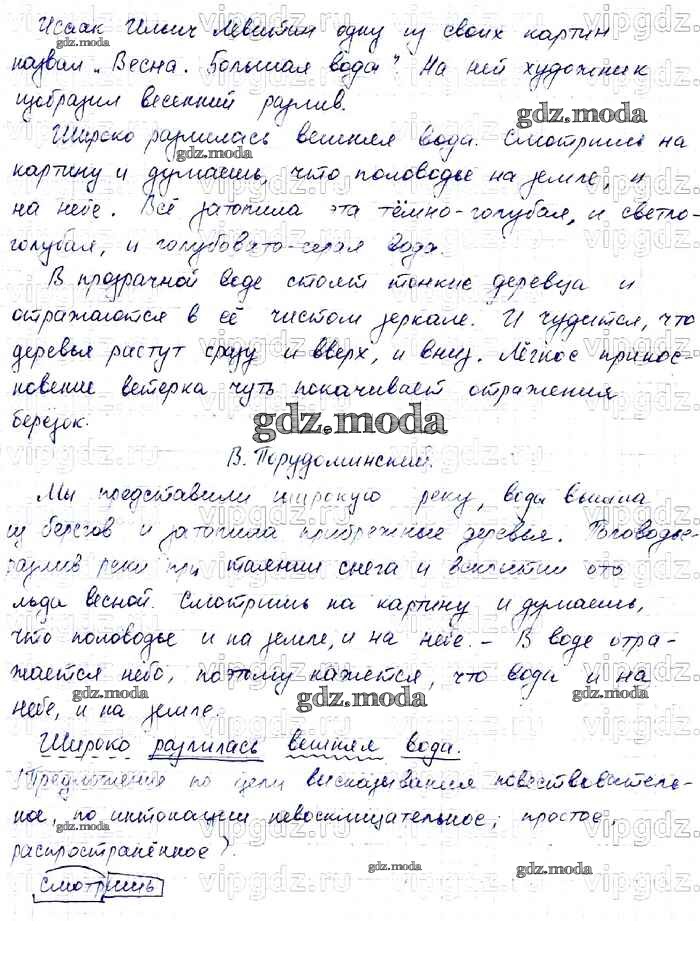 Исаак Ильич Левитан одну из своих картин
назвал „Весна. Большая вода". На ней художник
изобразил весенний разлив.
Широко разлилась вешняя вода. Смотришь на
картину и думаешь, что половодье на земле, и
на небе. Всё затопила эта тёмно-голубая, и светло-
голубая, и голубовато-серая вода.
В прозрачной воде стоят тонкие деревца и
отражаются в её чистом зеркале. И чудится, что
деревья растут сразу и вверх, и вниз. Лёгкое прикос-
новение ветерка чуть покачивает отражения
берёзок.
В. Порудоминский.
Мы представили широкую реку, вода вышла
из берегов и затопила прибрежные деревья. Половодье-
разлив реки при таянии снега и вскрытии ото
льда весной. Смотришь на картину и думаешь,
что половодье и на земле, и на небе. – В воде отра-
жается небо, поэтому кажется, что вода и на
небе, и на земле.
Широко разлилась вешняя вода.
(Предложение по цели высказывания повествователь-
ное, по интонации невосклицательное, простое,
распространённое).
смотришь
gdz.moda
vipgdz.ru